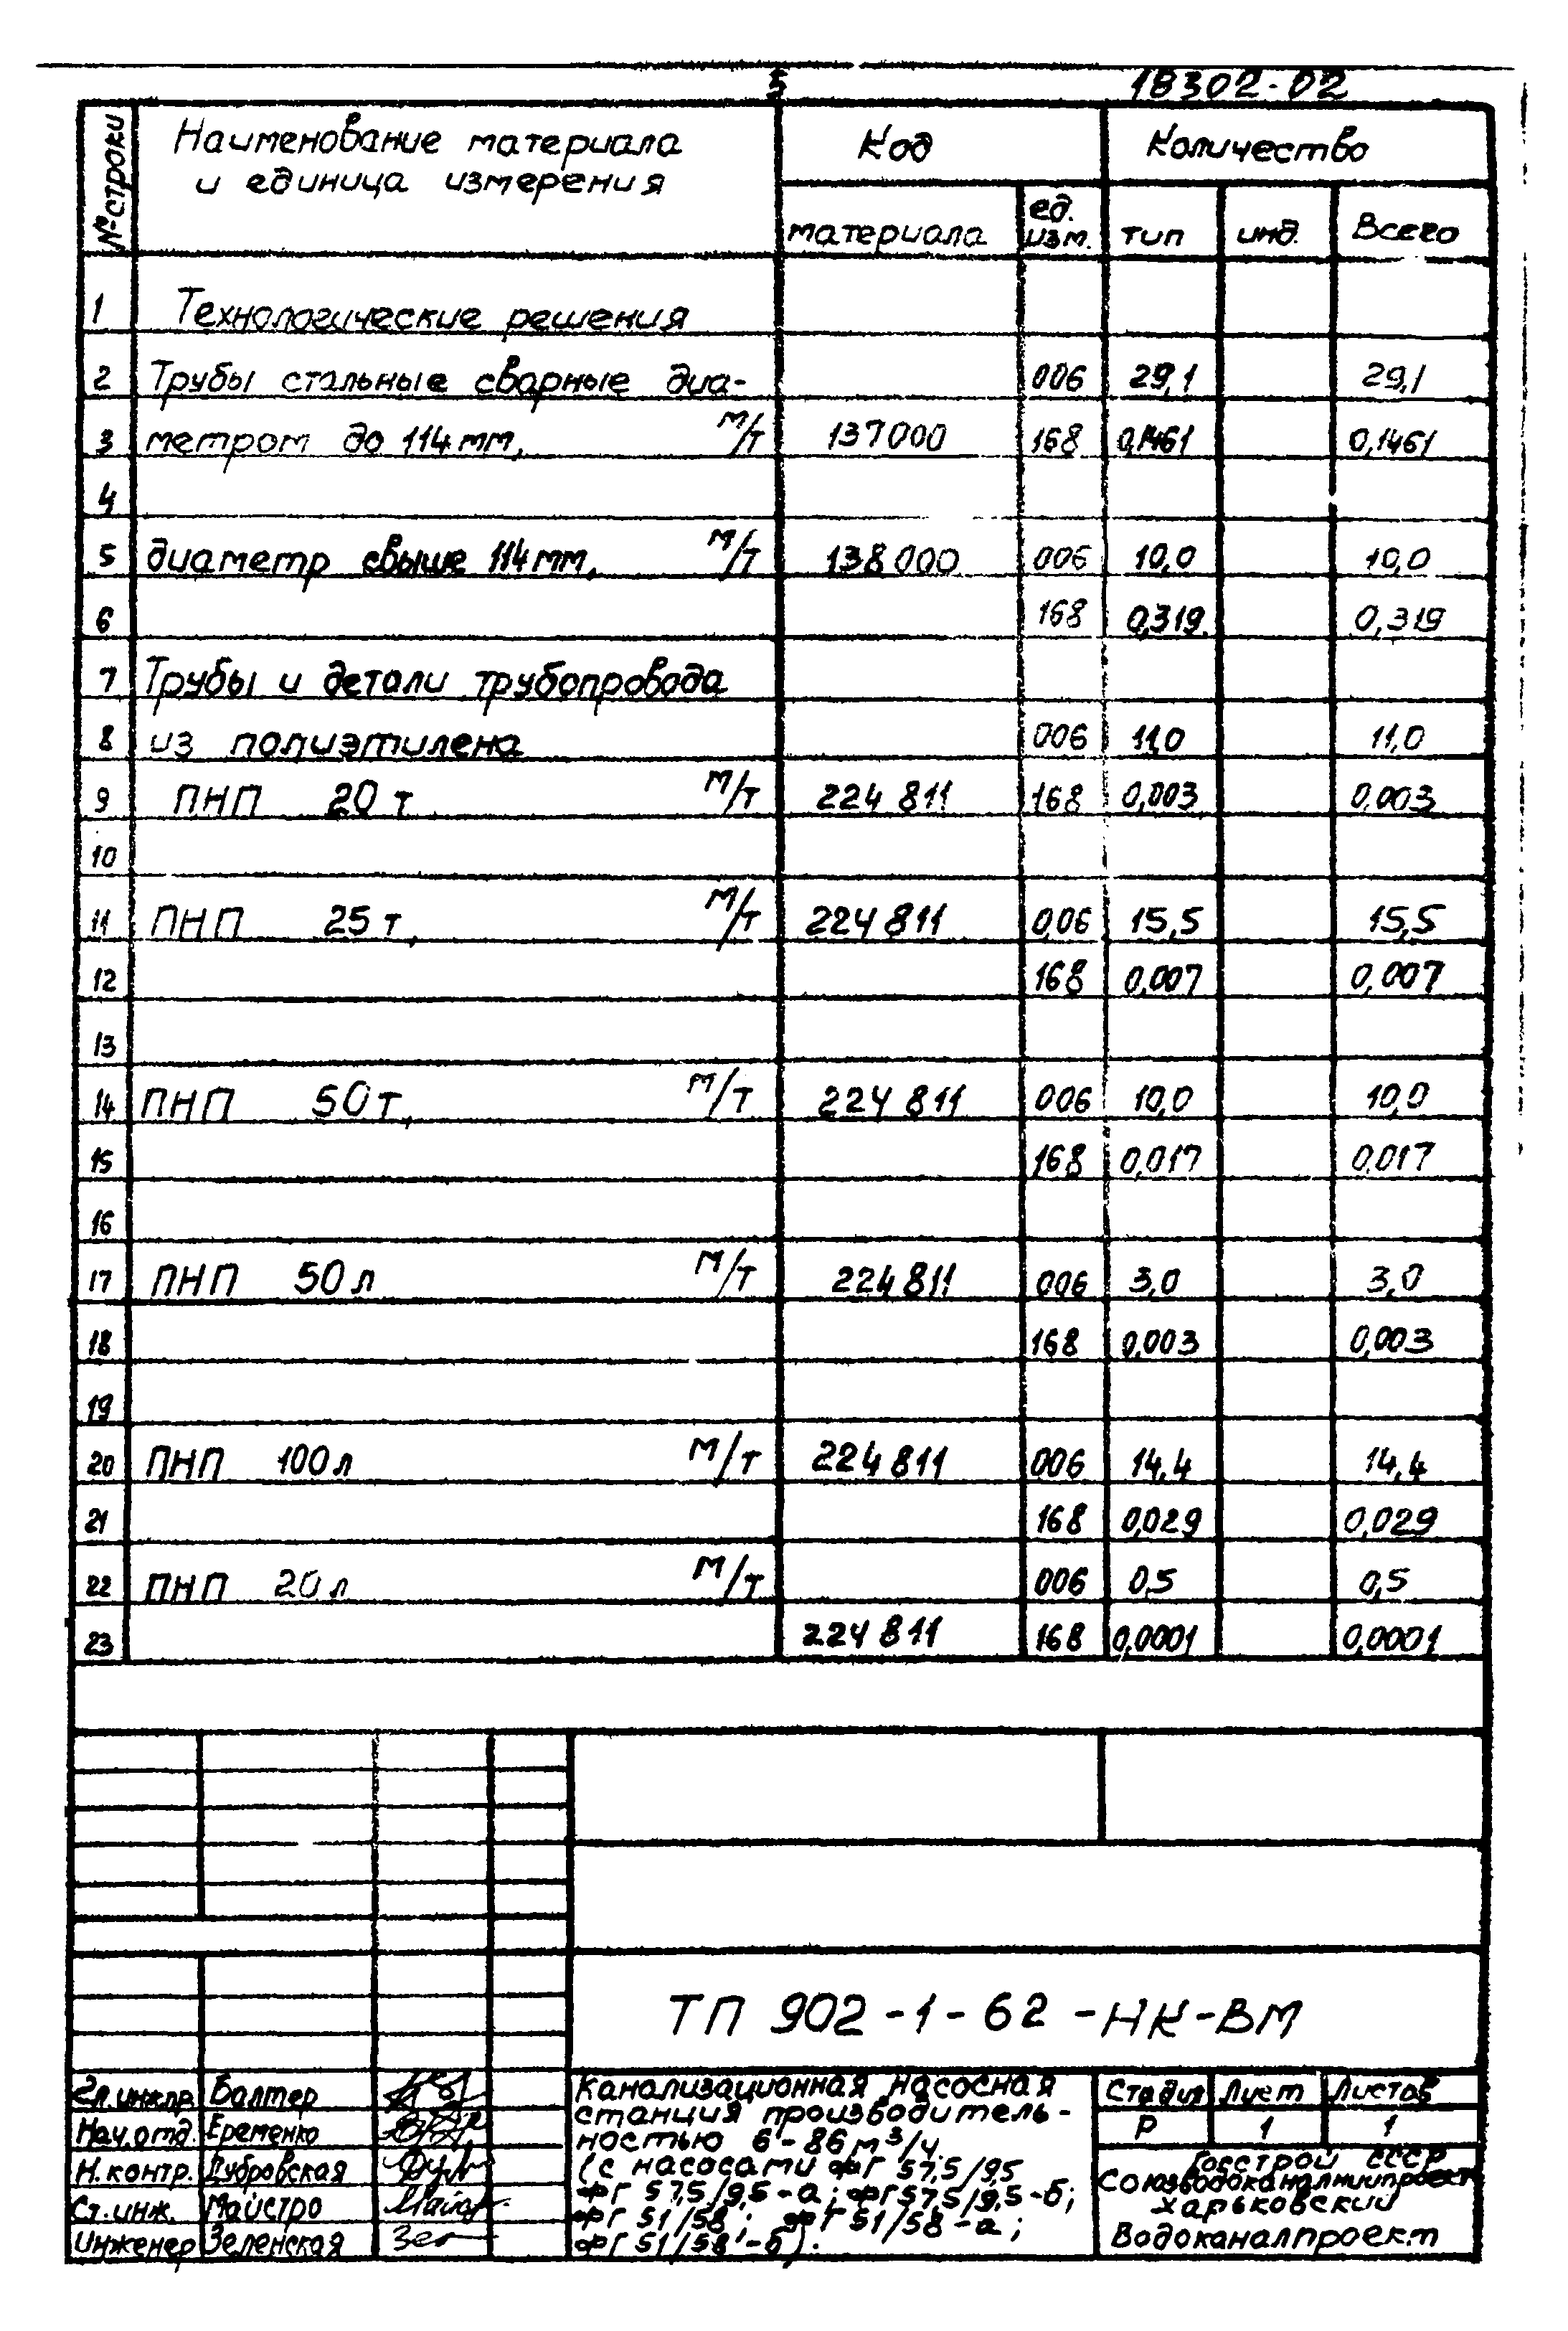 5 18302-02
№ строки Наименование материала и единица измерения Код Количество
материала ед. изм. тип инд. Всего
1 Технологические решения
2 Трубы стальные сварные диа- 006 29,1 29,1
3 метром до 114 мм, м/т 137000 168 0,1461 0,1461
4
5 диаметр свыше 114 мм, м/т 138000 006 10,0 10,0
6 168 0,319 0,319
7 Трубы и детали трубопровода
8 из полиэтилена 006 11,0 11,0
9 ПНП 20 т м/т 224 811 168 0,003 0,003
10
11 ПНП 25 т, м/т 224 811 006 15,5 15,5
12 168 0,007 0,007
13
14 ПНП 50 т, м/т 224 811 006 10,0 10,0
15 168 0,017 0,017
16
17 ПНП 50 л м/т 224 811 006 3,0 3,0
18 168 0,003 0,003
19
20 ПНП 100 л м/т 224 811 006 14,4 14,4
21 168 0,029 0,029
22 ПНП 20 л м/т 006 0,5 0,5
23 224 811 168 0,0001 0,0001
ТП 902-1-62-НК-ВМ
Гл. инж. пр. Балтер
Нач. отд. Еременко
Н. контр. Дубровская
Ст. инж. Майстро
Инженер Зеленская
Канализационная насосная
станция производитель-
ностью 6-86 м³/ч.
(с насосами ФГ 57,5/9,5
ФГ 57,5/9,5-а; ФГ 57,5/9,5-б;
ФГ 51/58; ФГ 51/58-а;
ФГ 51/58-б).
Стадия Лист Листов
Р 1 1
Госстрой СССР
Союзводоканалниипроект
Харьковский
Водоканалпроект